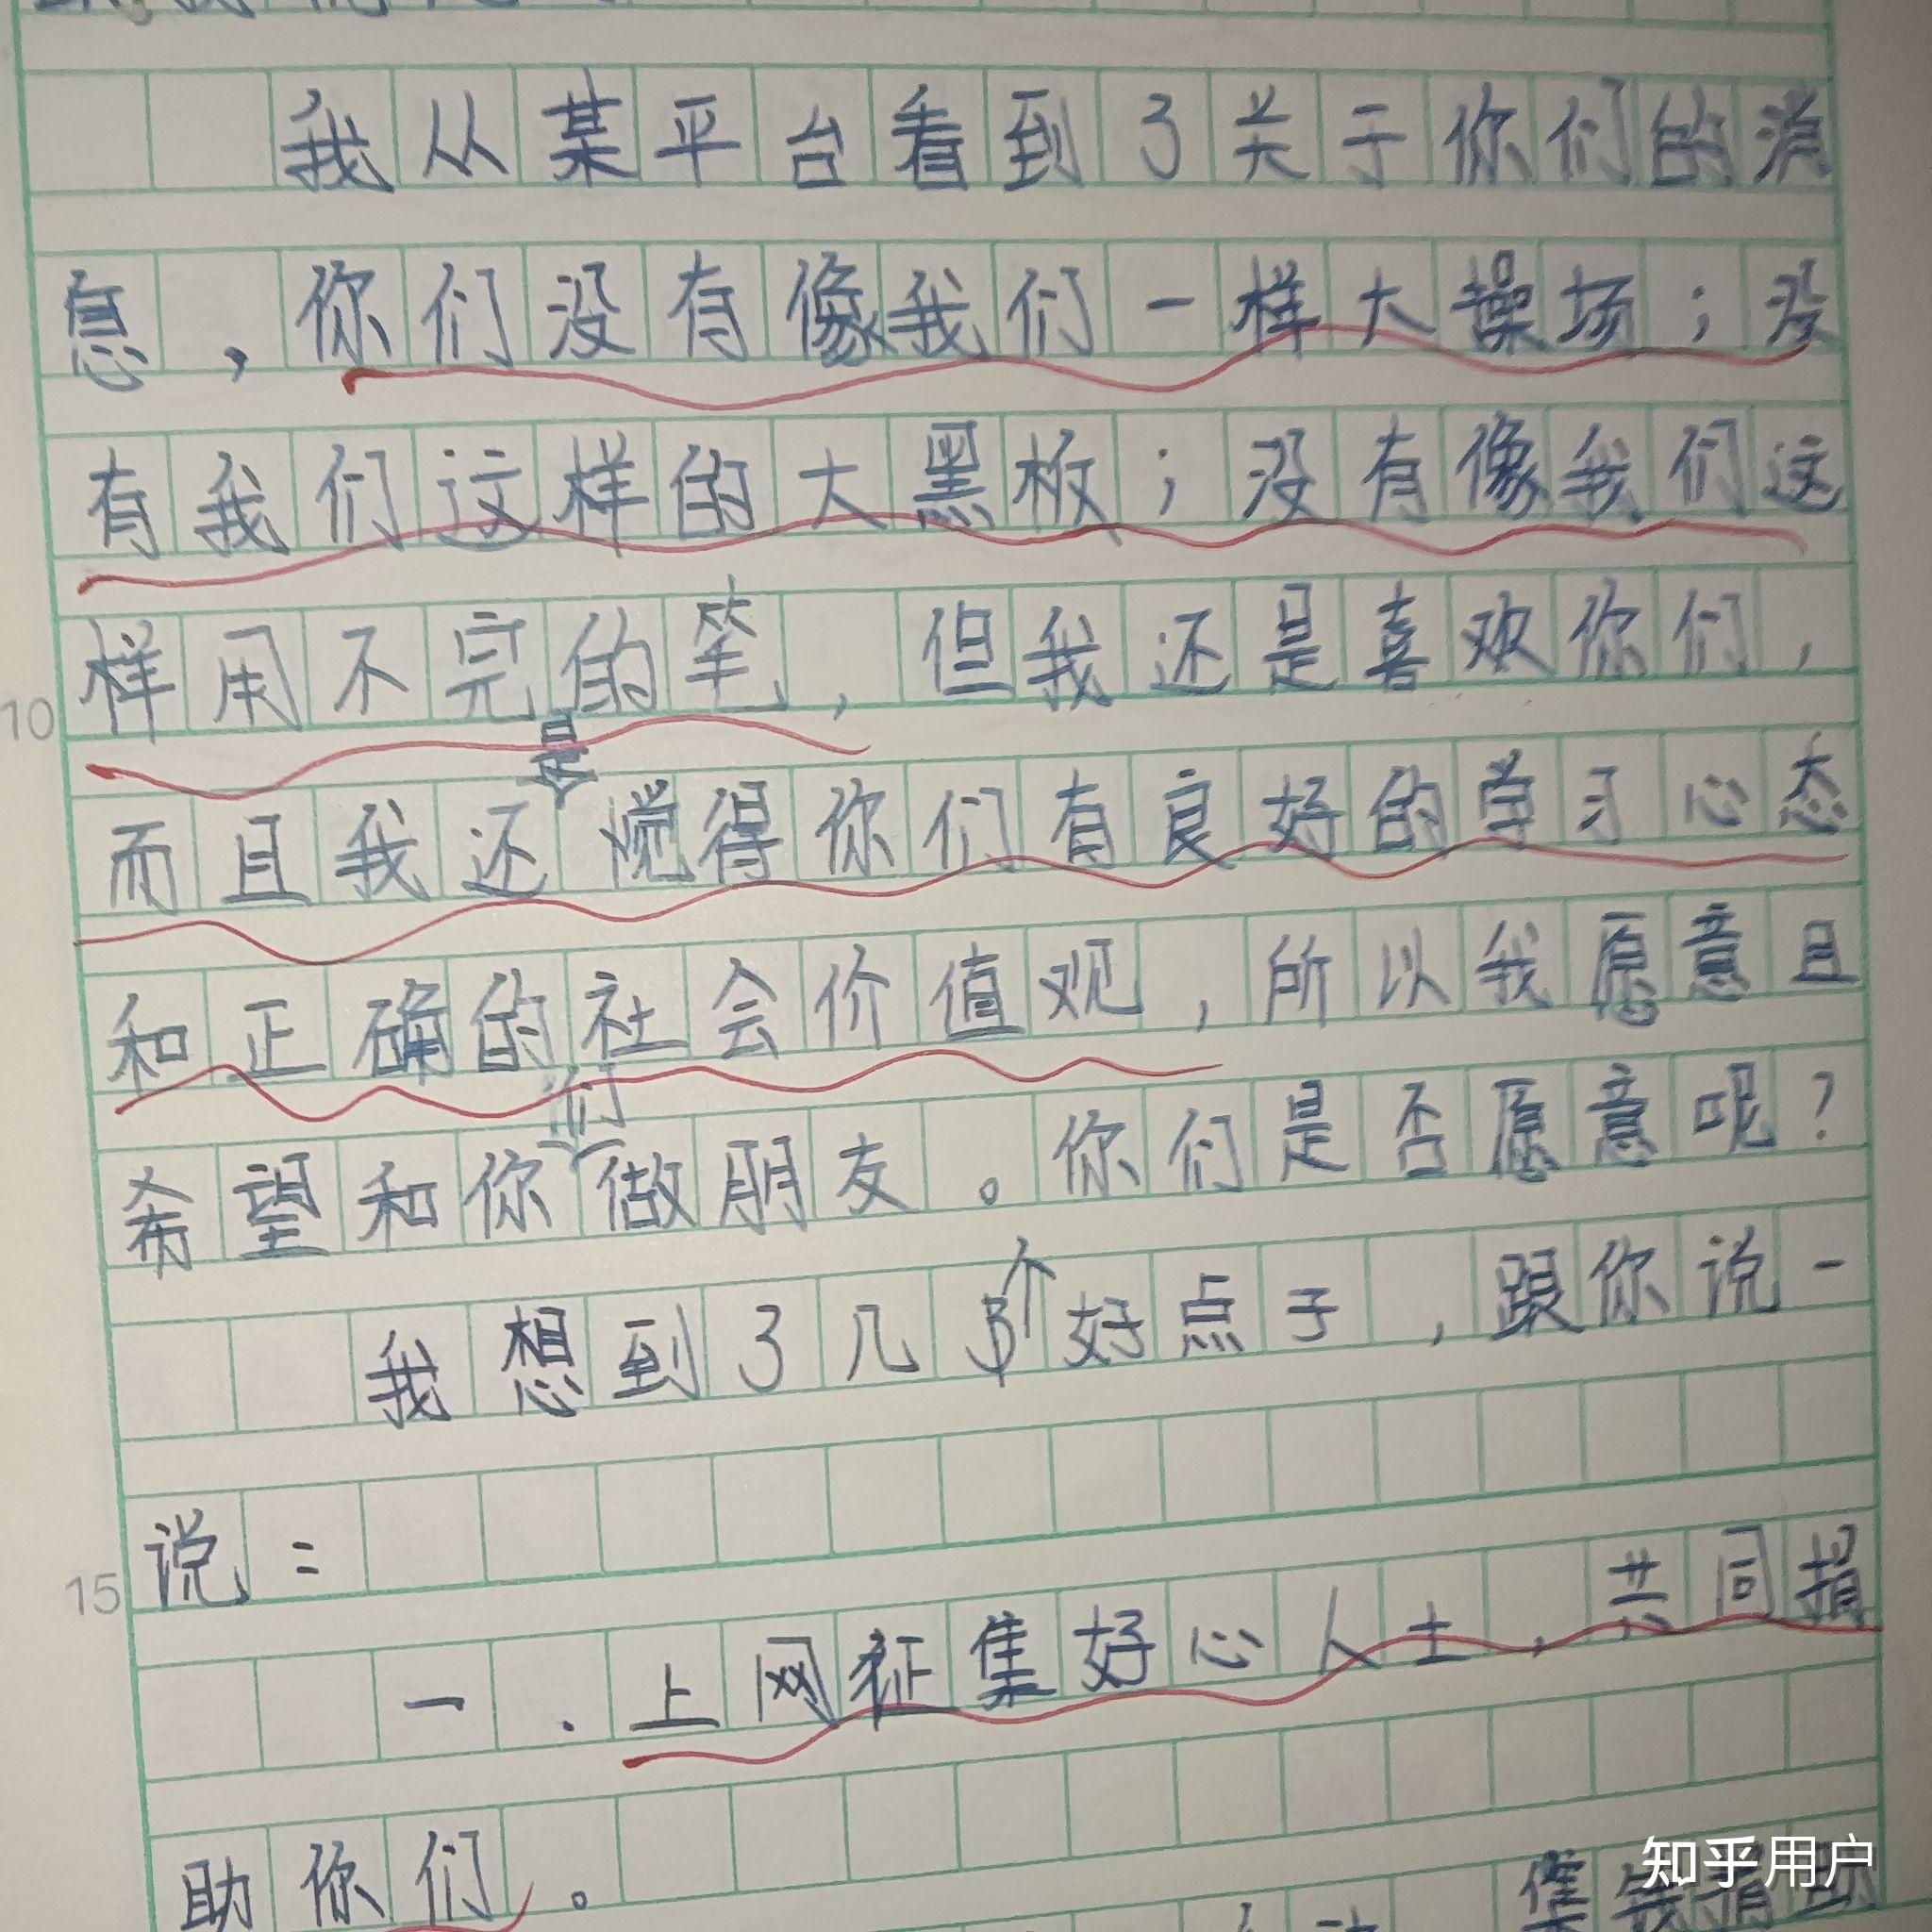 我从某平台看到了关于你们的消
息，你们没有像我们一样大操场；没
有我们这样的大黑板；没有像我们这
样用不完的笔，但我还是喜欢你们，
10
是
而且我还觉得你们有良好的学习心态
和正确的社会价值观，所以我愿意且
们
希望和你做朋友。你们是否愿意呢？
我想到了几个好点子，跟你说一
15
说：
一.上网征集好心人士，共同捐
助你们。
知乎用户